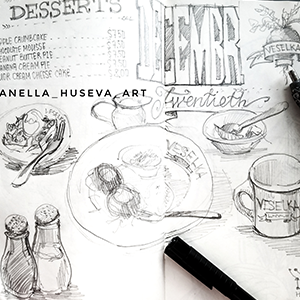 DESSERTS
PPLE CRUMBCAKE ------ $7.50
HOCOLATE MOUSSE
EANUT BUTTER PIE
ANANA CREAM PIE
OUR CREAM CHEESE CAKE
DECEMBR
twentieth
VESELKA
ANELLA_HUSEVA_ART
VESELKA
VESELKA